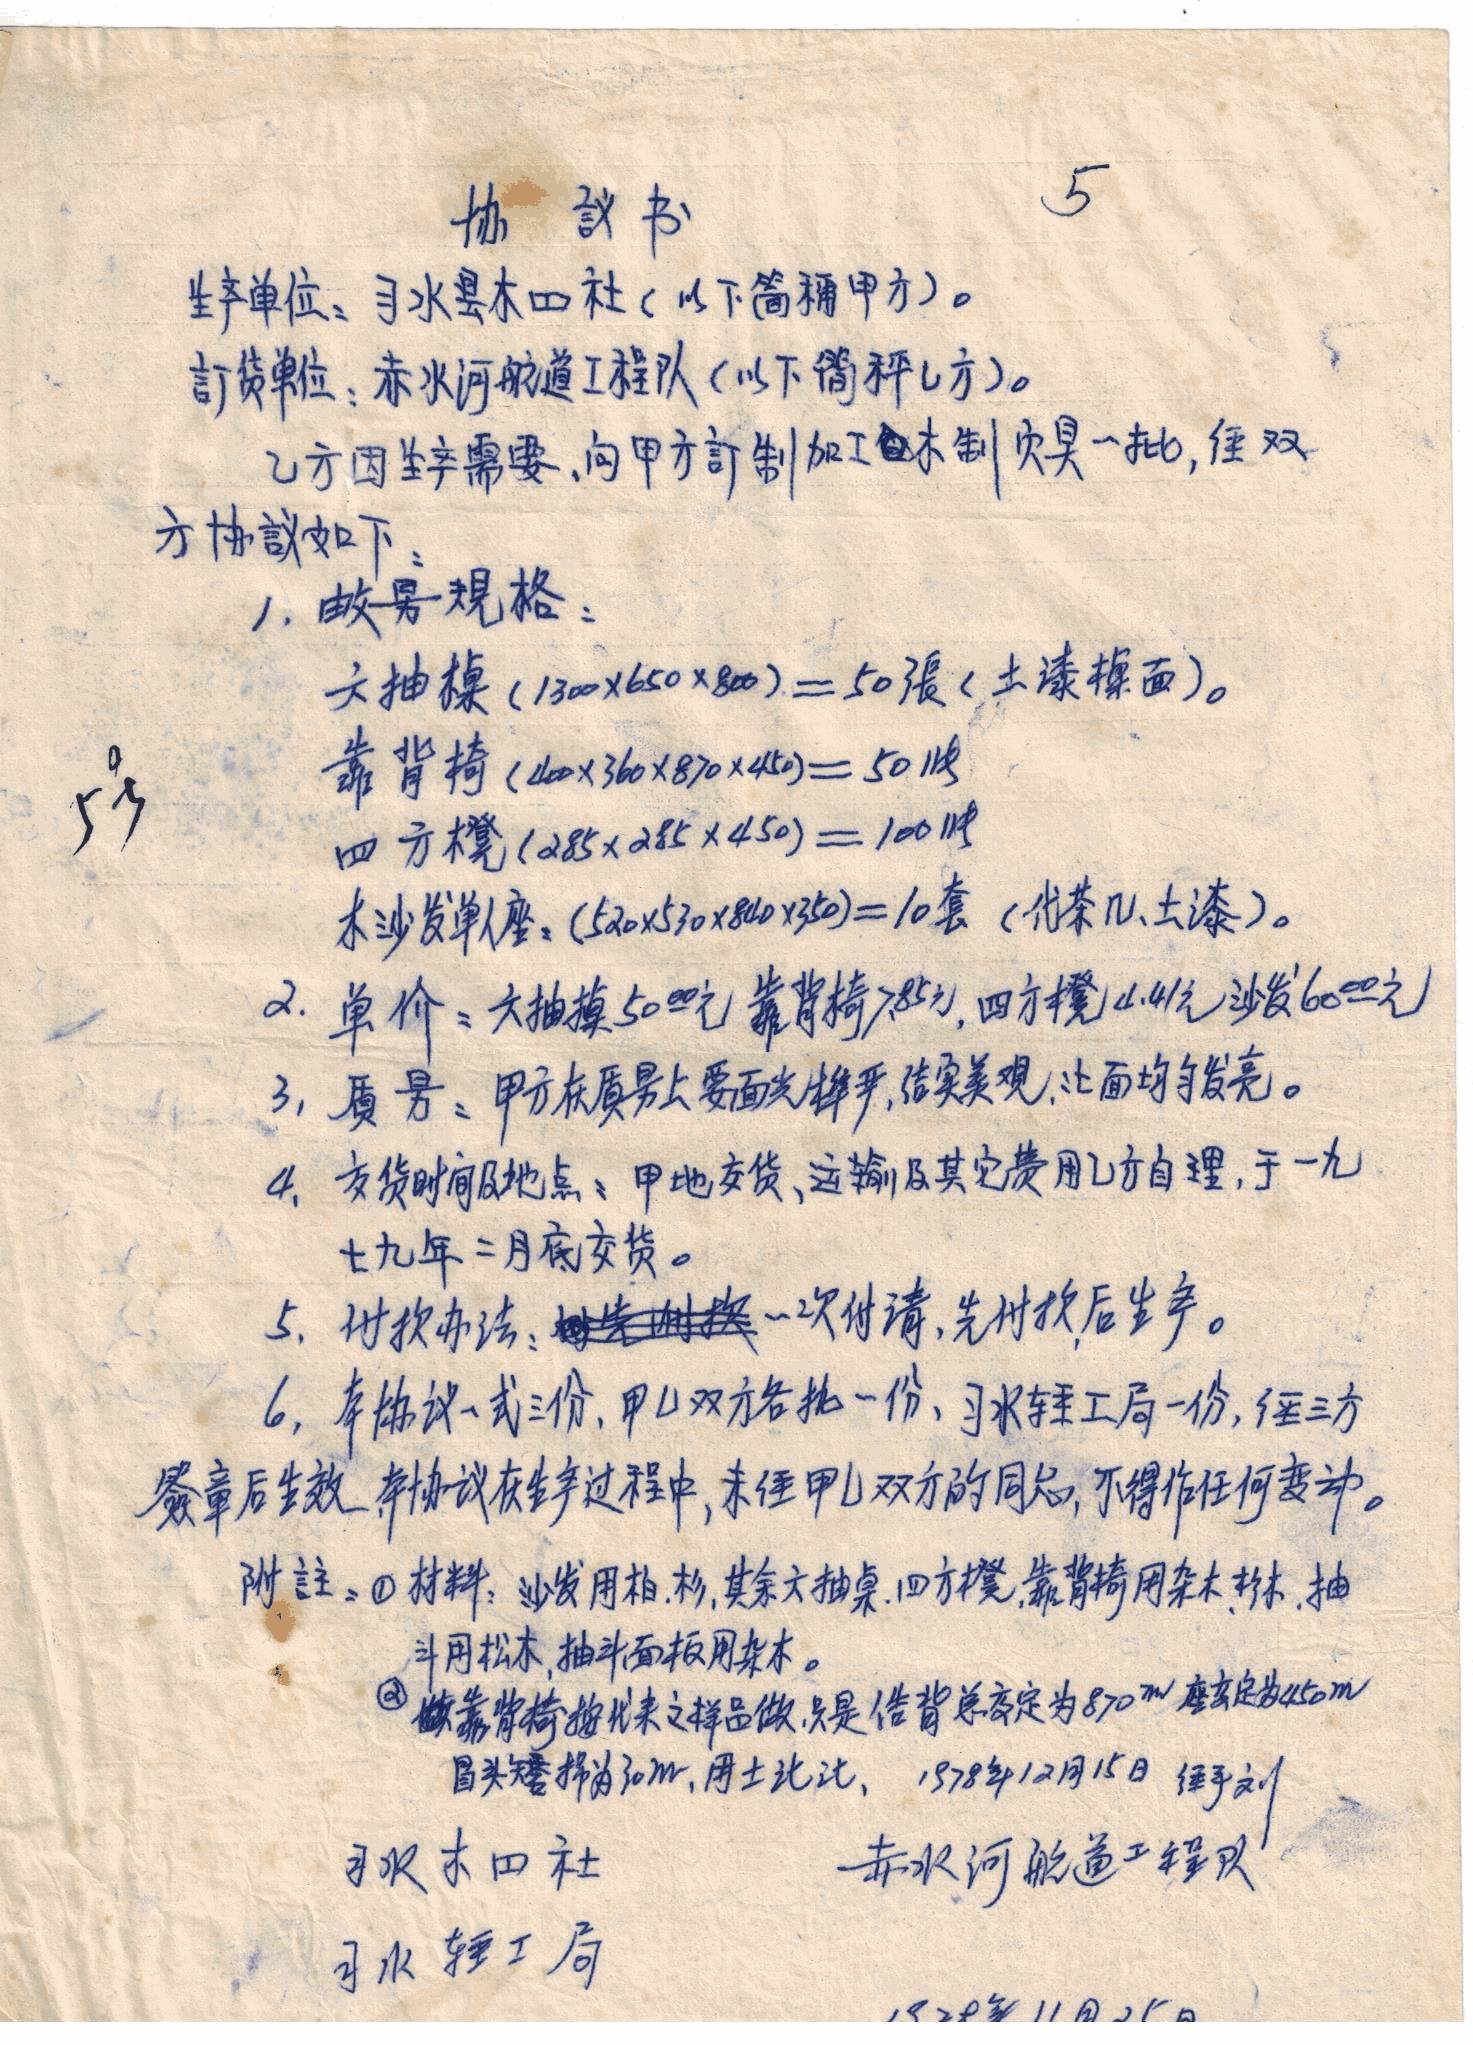 5
协議书
生产单位：习水县木四社（以下简稱甲方）。
訂货单位：赤水河航道工程队（以下简秤乙方）。
乙方因生产需要、向甲方訂制加工木制家具一批，经双
方协議如下：
1. 数另規格：
六抽槕（1300×650×800）=50張（土漆槕面）。
靠背椅（400×360×870×450）=50把
四方櫈（285×285×450）=100把
木沙发单人座：（520×530×840×350）=10套（代茶几、土漆）。
2. 单价：六抽槕50.00元 靠背椅7.85元，四方櫈4.41元 沙发60.00元
3, 质另：甲方在质另上要面光榫严，结实美观，氿面均匀发亮。
4, 交货时间及地点：甲地交货、运输及其它费用乙方自理，于一九
七九年二月底交货。
5, 付款办法：一次付清，先付款，后生产。
6, 本协议一式三份，甲乙双方各执一份、习水轻工局一份，经三方
签章后生效，本协议在生产过程中，未经甲乙双方的同意，不得作任何变动。
附註：① 材料：沙发用柏.杉，其余六抽桌.四方櫈、靠背椅用杂木、杉木、抽
斗用松木，抽斗面板用杂木。
② 靠背椅按代来之样品做，只是 背总高定为870m 座高定为450m
为30m，用土 1978年12月15日 经手刘
习水木四社 赤水河航道工程队
习水轻工局
1978年11月25日